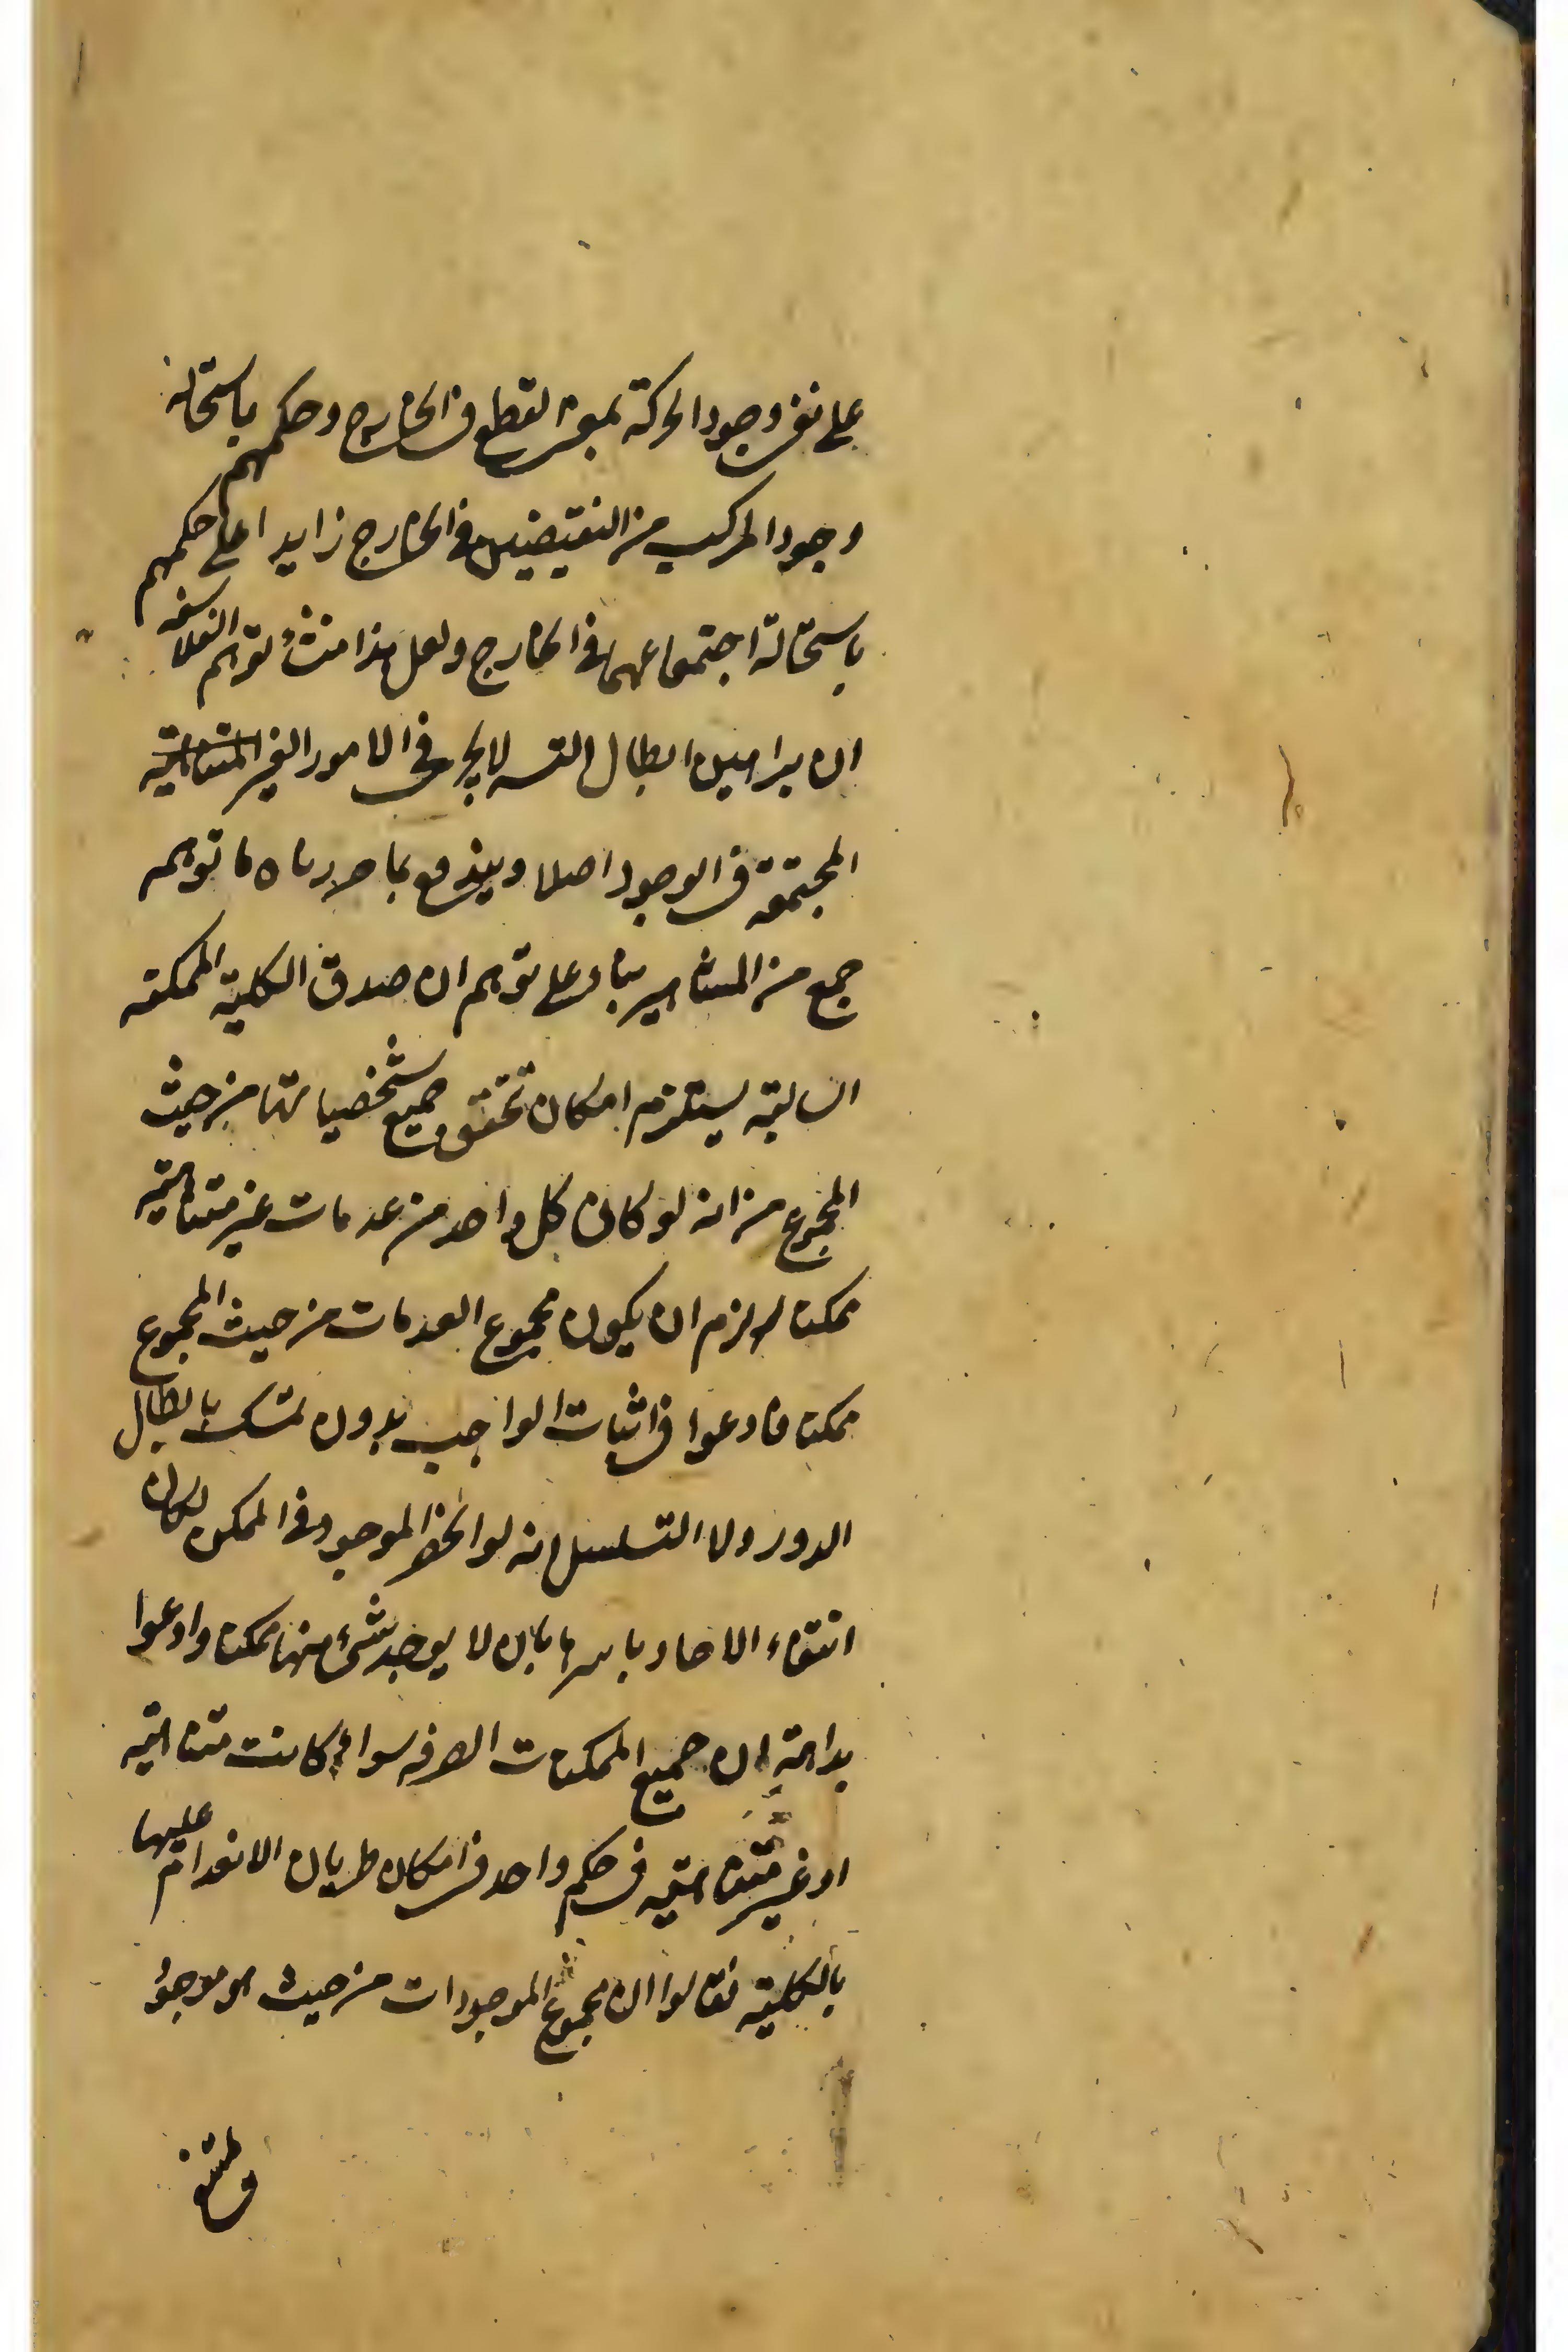 على نفى وجود الحركة بمعنى القطع فى الخارج وحكمهم باستحالة
وجود المركب من النقيضين فى الخارج زايدا على حكمهم
باستحالة اجتماعهما فى الخارج ولعل هذا منشأ توهم الفلاسفه
ان براهين ابطال التسـ لا يجرى فى الامور الغير المتناهية
المجتمعة فى الوجود اصلا ويندفع بما حررناه ما توهمه
جمع من المشاهير بناء على توهم ان صدق الكلية الممكنة
السالبة يستلزم امكان تحقق جميع شخصياتها من حيث
المجموع من انه لو كان كل واحد من عدمات غير متناهية
ممكنا لزم ان يكون مجموع العدمات من حيث المجموع
ممكنا فادعوا فى اثبات الواجب بدون تمسك بابطال
الدور ولا التسلسل انه لو انحصر الموجود فى الممكن لكان
انتفاء الاحاد باسرها بان لا يوجد شئ منها ممكنا وادعوا
بداهة ان جميع الممكنات الصرفه سواء كانت متناهية
او غير متناهية فى حكم واحد فى امكان طريان الانعدام عليها
بالكلية فقالوا ان مجموع الموجودات من حيث هو موجود